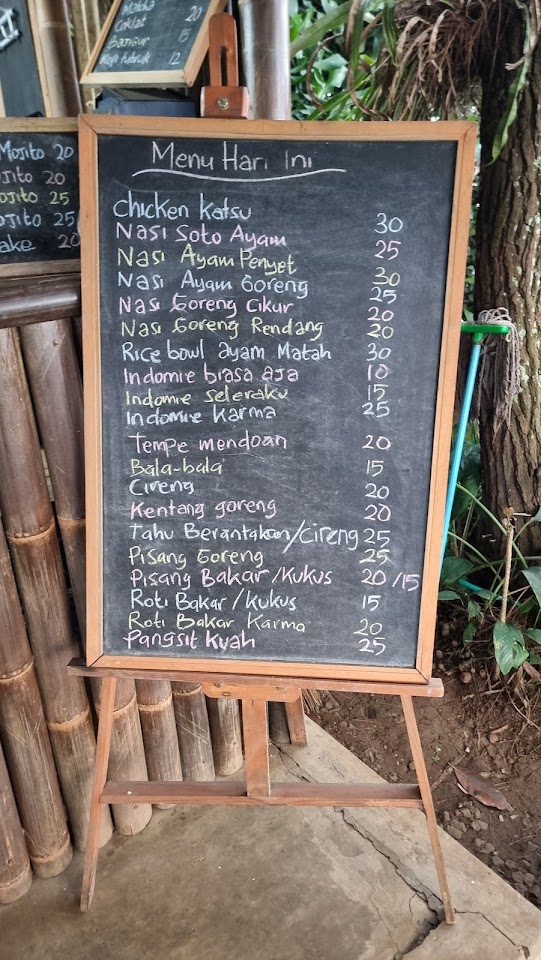 Coklat 20
Bajigur 15
Kopi tubruk 12
Mojito 20
ojito 20
ojito 25
ojito 25
ake 20
Menu Hari Ini
chicken katsu 30
Nasi Soto Ayam 25
Nasi Ayam Penyet 30
Nasi Ayam Goreng 25
Nasi Goreng Cikur 20
Nasi Goreng Rendang 20
Rice bowl ayam Matah 30
Indomie biasa aja 10
Indomie seleraku 15
Indomie karma 25
Tempe mendoan 20
Bala-bala 15
Cireng 20
Kentang goreng 20
Tahu Berantakan/Cireng 25
Pisang Goreng 25
Pisang Bakar/Kukus 20/15
Roti Bakar/Kukus 15
Roti Bakar Karma 20
Pangsit Kuah 25